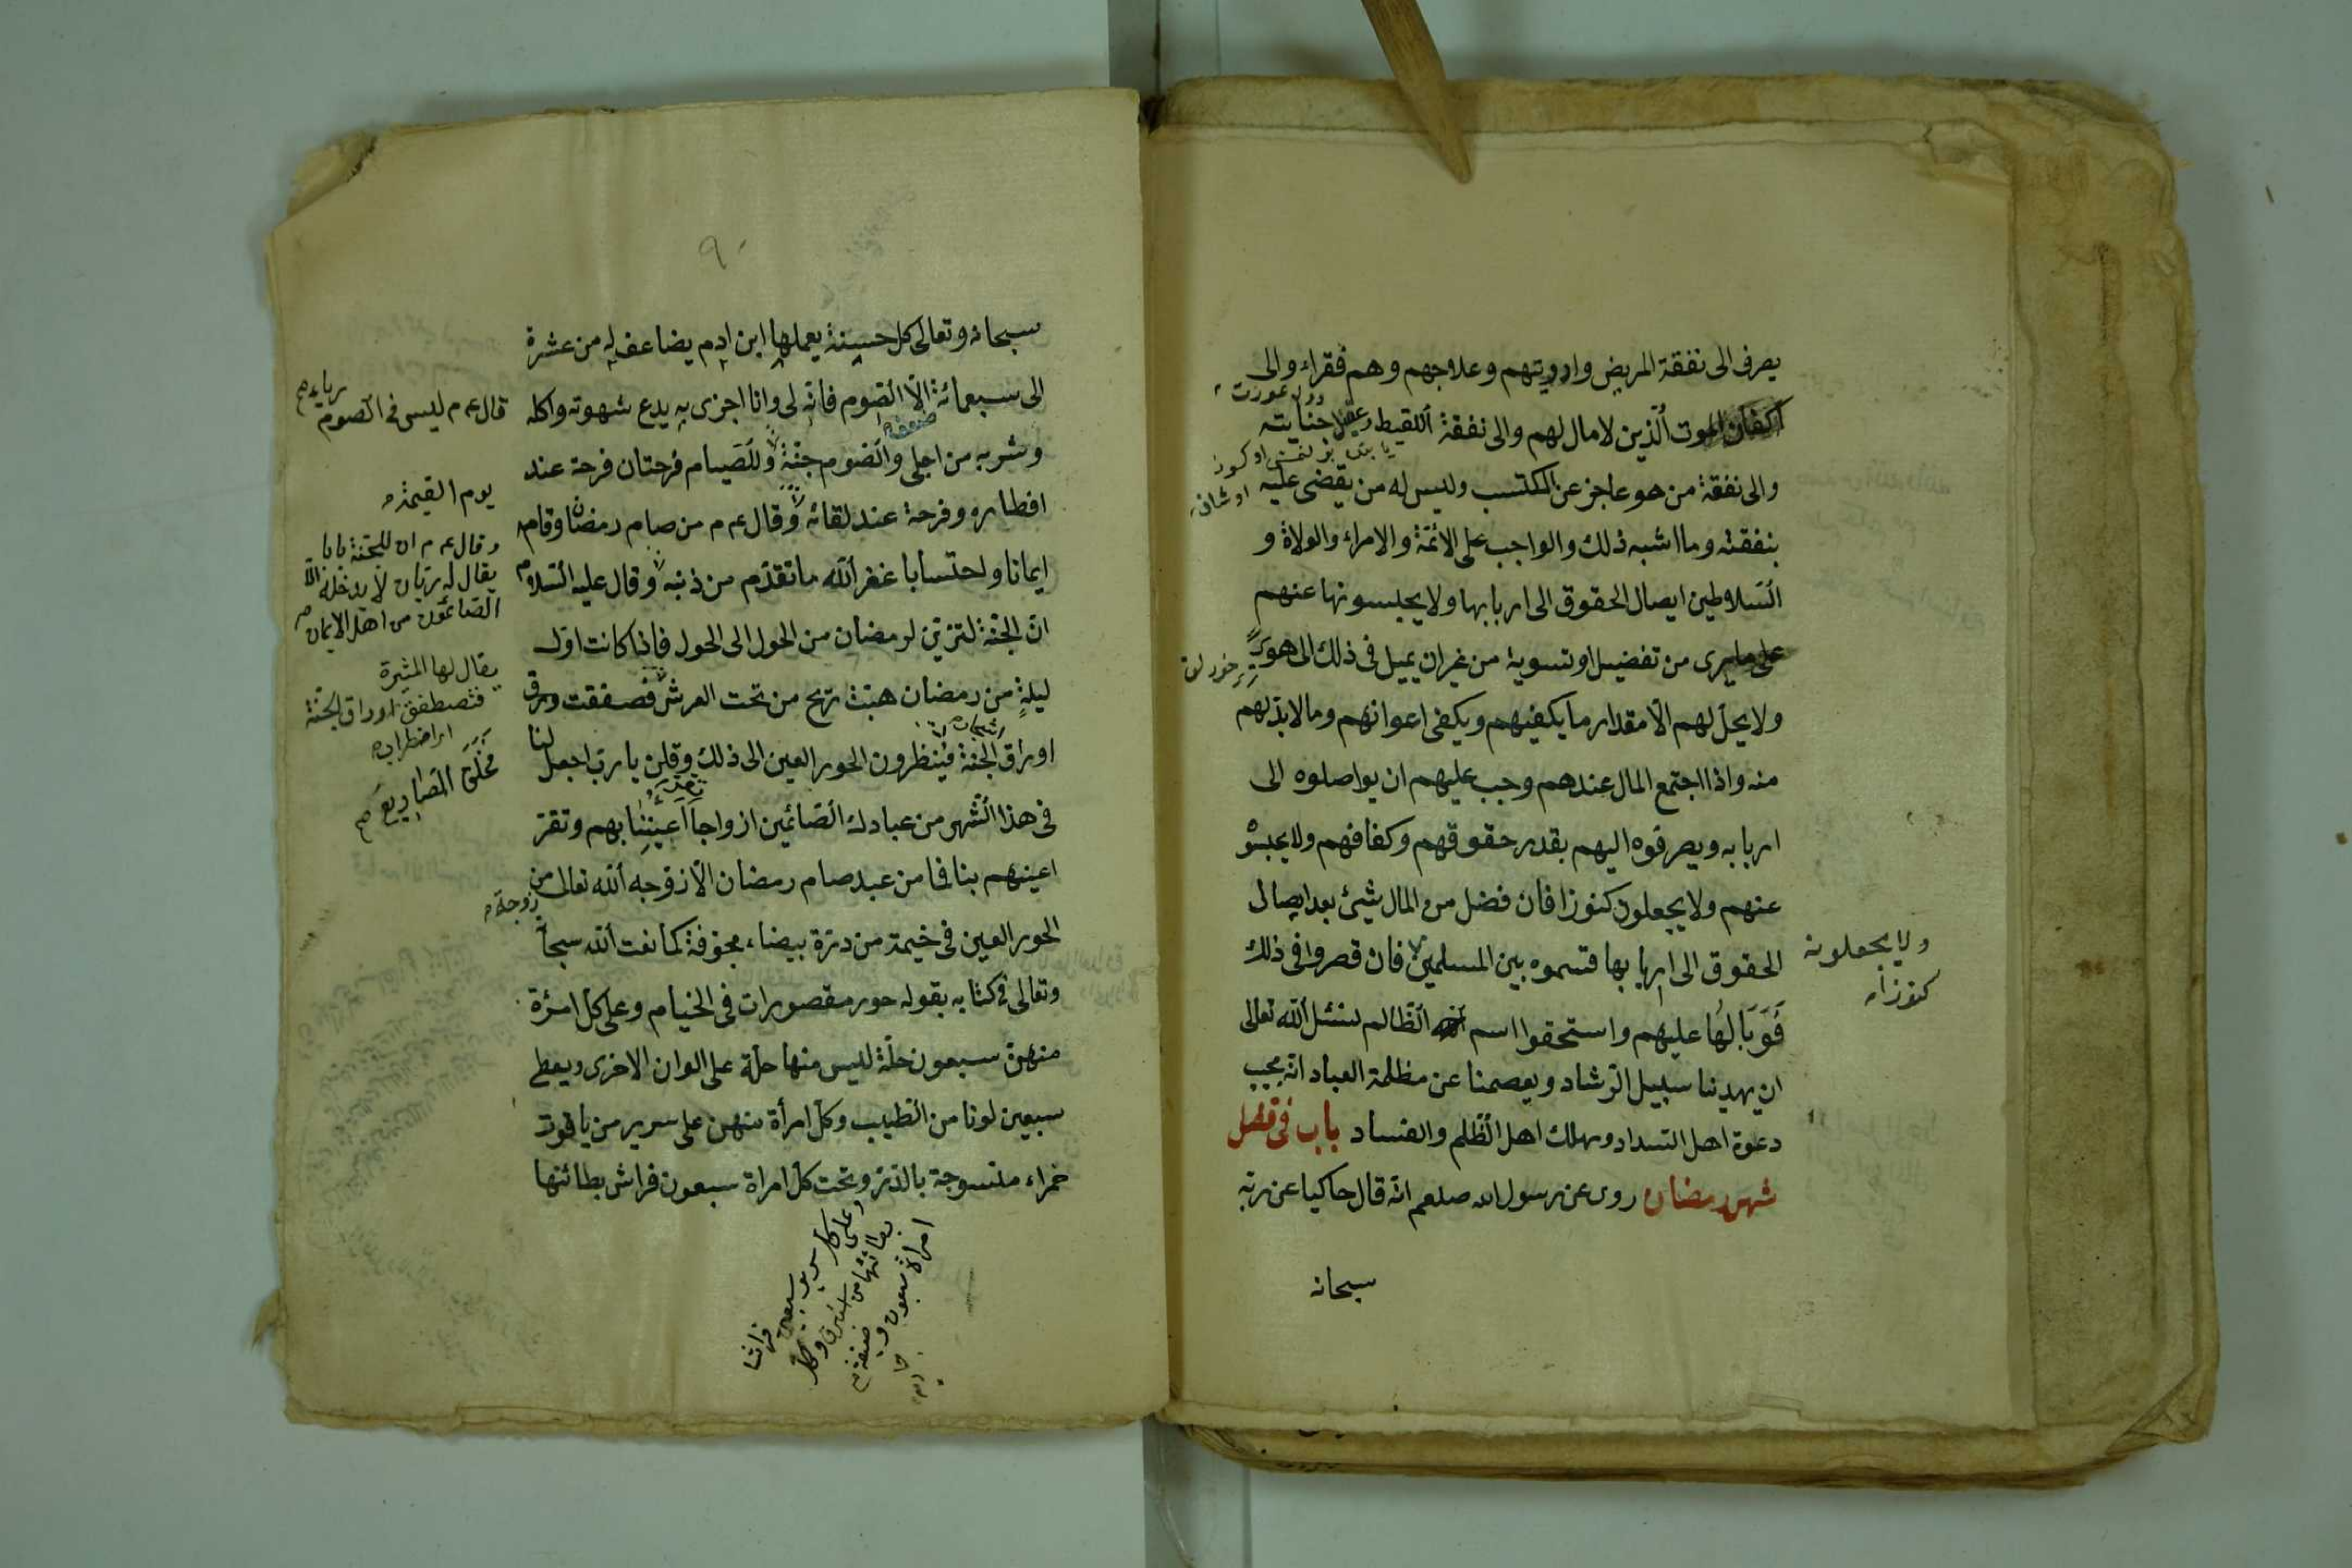 يصرف الى نفقة المريض وادويتهم وعلاجهم وهم فقراء والى
اكفان الموت الّذين لا مال لهم والى نفقة اللقيط وعقل جنايته
والى نفقة من هو عاجز عن الكتسب وليس له من يقضى عليه
بنفقته وما اشبه ذلك والواجب على الائمّة والامراء والولاة و
السّلاطين ايصال الحقوق الى اربابها ولا يحبسونها عنهم
على ما يرى من تفضيل او تسوية من غير ان يميل فى ذلك الى هوى
ولا يحلّ لهم الّا مقدار ما يكفيهم ويكفى اعوانهم وما لا بدّ لهم
منه واذا اجتمع المال عندهم وجب عليهم ان يواصلوه الى
اربابه ويصرفوه اليهم بقدر حقوقهم وكفافهم ولا يحبسو
عنهم ولا يجعلون كنوزا فان فضل من المال شيئ بعد ايصال
الحقوق الى اربابها قسموه بين المسلمين فان قصروا فى ذلك
فَوَبَالُها عليهم واستحقوا اسم الظّالم نسئل اللّه تعالى
ان يهدينا سبيل الرّشاد ويعصمنا عن مظلمة العباد انّه مجيب
دعوة اهل السّداد ومهلك اهل الظّلم والفساد باب فى فضل
شهر رمضان روى عن رسول الله صلعم انّه قال حاكيا عن ربّه
سبحانه
ولا يجعلونه
كنوزا
٩٠
سبحانه وتعالى كل حسنة يعملها ابن ادم يضاعف له من عشرة
الى سبعمائة الّا الصّوم فانّه لى وانا اجزى به يدع شهوته واكله
وشربه من اجلى والصّوم جنّة وللصّيام فرحتان فرحة عند
افطاره وفرحة عند لقائه وقال عم م من صام رمضان وقامه
ايمانا واحتسابا غفر اللّه ما تقدّم من ذنبه وقال عليه السّلام
انّ الجنّة لتزيّن لرمضان من الحول الى الحول فاذا كانت اوّل
ليلةٍ من رمضان هبّت ريح من تحت العرش فصفقت ورق
اوراق الجنّة فينظرون الحور العين الى ذلك وقلن يا ربّ اجعل لنا
فى هذا الشّهر من عبادك الصّائمين ازواجا اعيننا بهم وتقرّ
اعينهم بنا فما من عبد صام رمضان الّا زوّجه اللّه تعالى من
الحور العين فى خيمة من درّة بيضاء مجوّفة كما نعت اللّه سبحا
وتعالى فى كتابه بقوله حور مقصورات فى الخيام وعلى كلّ امرئة
منهنّ سبعون حلّة ليس منها حلّة على الوان الاخرى ويعطى
سبعين لونا من الطّيب وكل امرأة منهن على سرير من ياقوت
حمراء منسوجة بالدّرّ وتحت كلّ امراة سبعون فراش بطائنها
قال عم م ليس فى الصوم
رياء
يوم القيمة
وقال عم م ان للجنّة بابا
يقال له ريّان لا يدخله الّا
الصّائمون من اهل الايمان
يقال لها المثيرة
فتصطفق اوراق الجنّة
وحلق المصاريع
وعلى كل سرير سبعين فراشا
بطائنها من استبرق
امراة سبعون